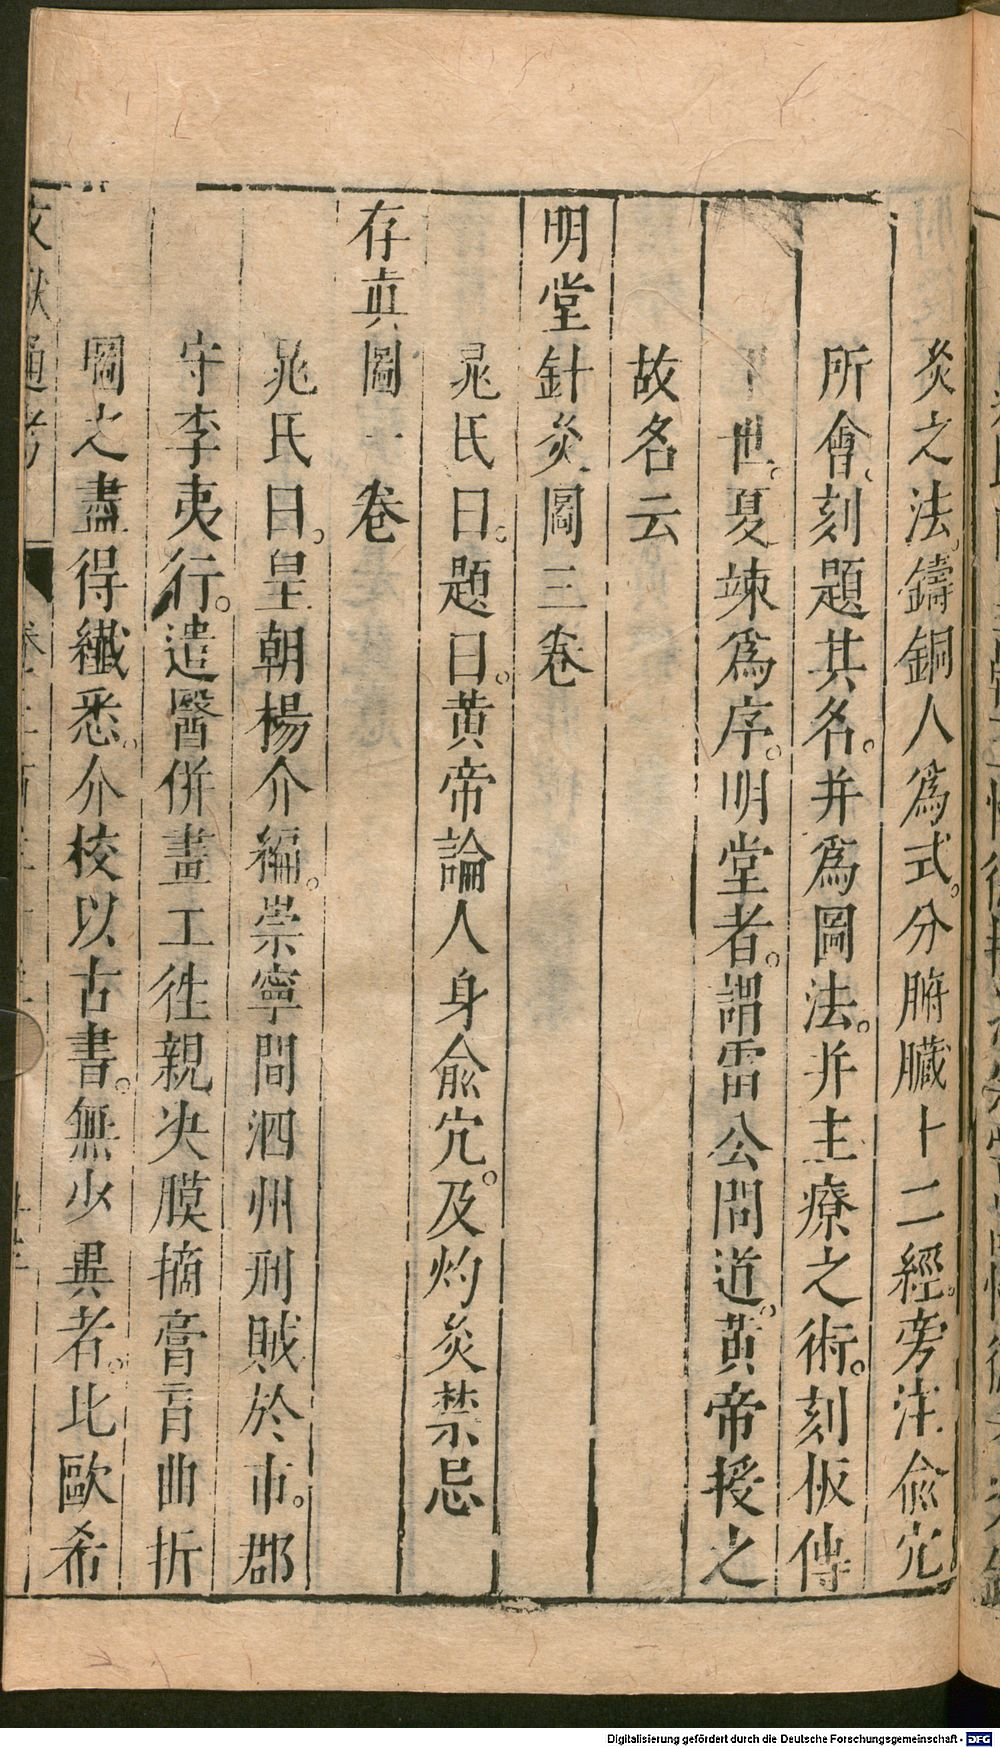 灸之法。鑄銅人爲式。分腑臟十二經。旁注俞穴
所會。刻題其名。并爲圖法。并主療之術。刻板傳
于世。夏竦爲序。明堂者。謂雷公問道。黃帝授之
故名云
明堂針灸圖三卷
晁氏曰。題曰。黃帝論人身俞穴。及灼灸禁忌
存真圖一卷
晁氏曰。皇朝楊介編。崇寧間泗州刑賊於市。郡
守李夷行。遣醫併畫工徃親决膜摘膏肓曲折
圖之盡得纎悉。介校以古書。無少異者。比歐希
文獻通考
Digitalisierung gefördert durch die Deutsche Forschungsgemeinschaft - DFG